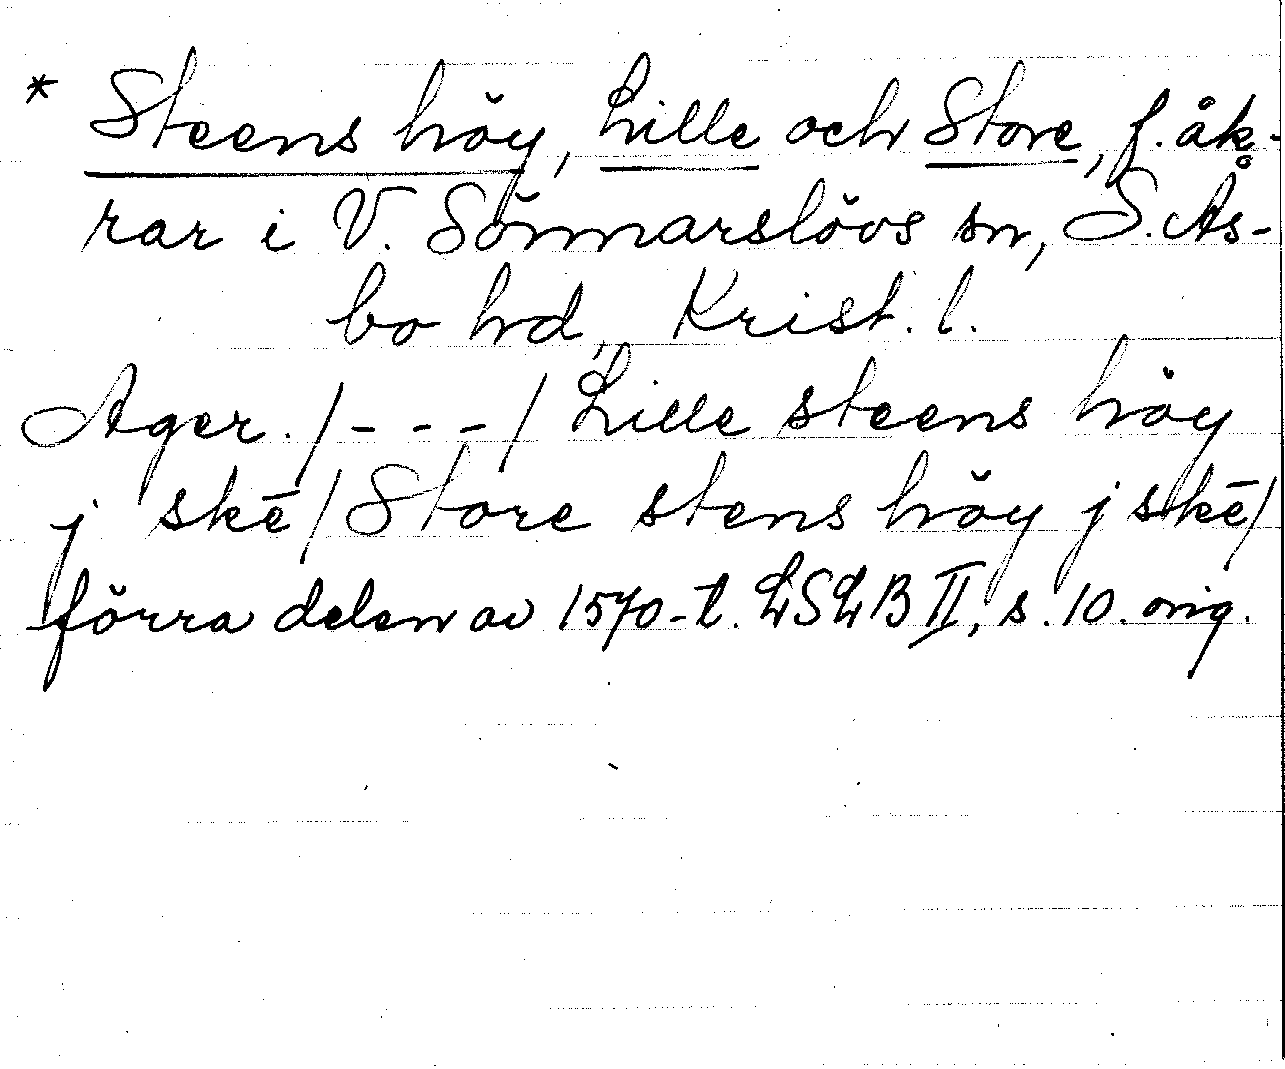 * Steens höy, Lille och Store, f. åk-
rar i V. Sönnarslövs sn, S. Ås-
bo hd, Krist. l.
Ager. / - - - / Lille steens höy
j skē / Store stens höy j skē /
förra delen av 1570-t. LSLB II, s. 10. orig.